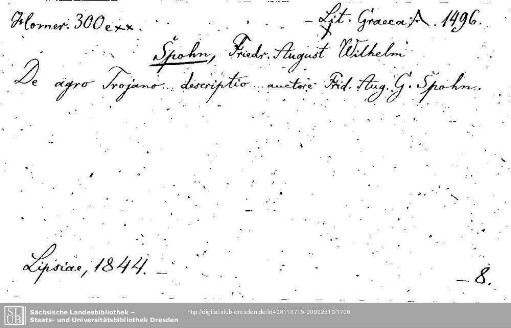 Homer. 300exx. – Lit. Graeca A. 1496.
Spohn, Friedr. August Wilhelm
De agro Trojano descriptio auctore Frid. Aug. G. Spohn.
Lipsiae, 1844. –
– 8.
Sächsische Landesbibliothek –
Staats- und Universitätsbibliothek Dresden